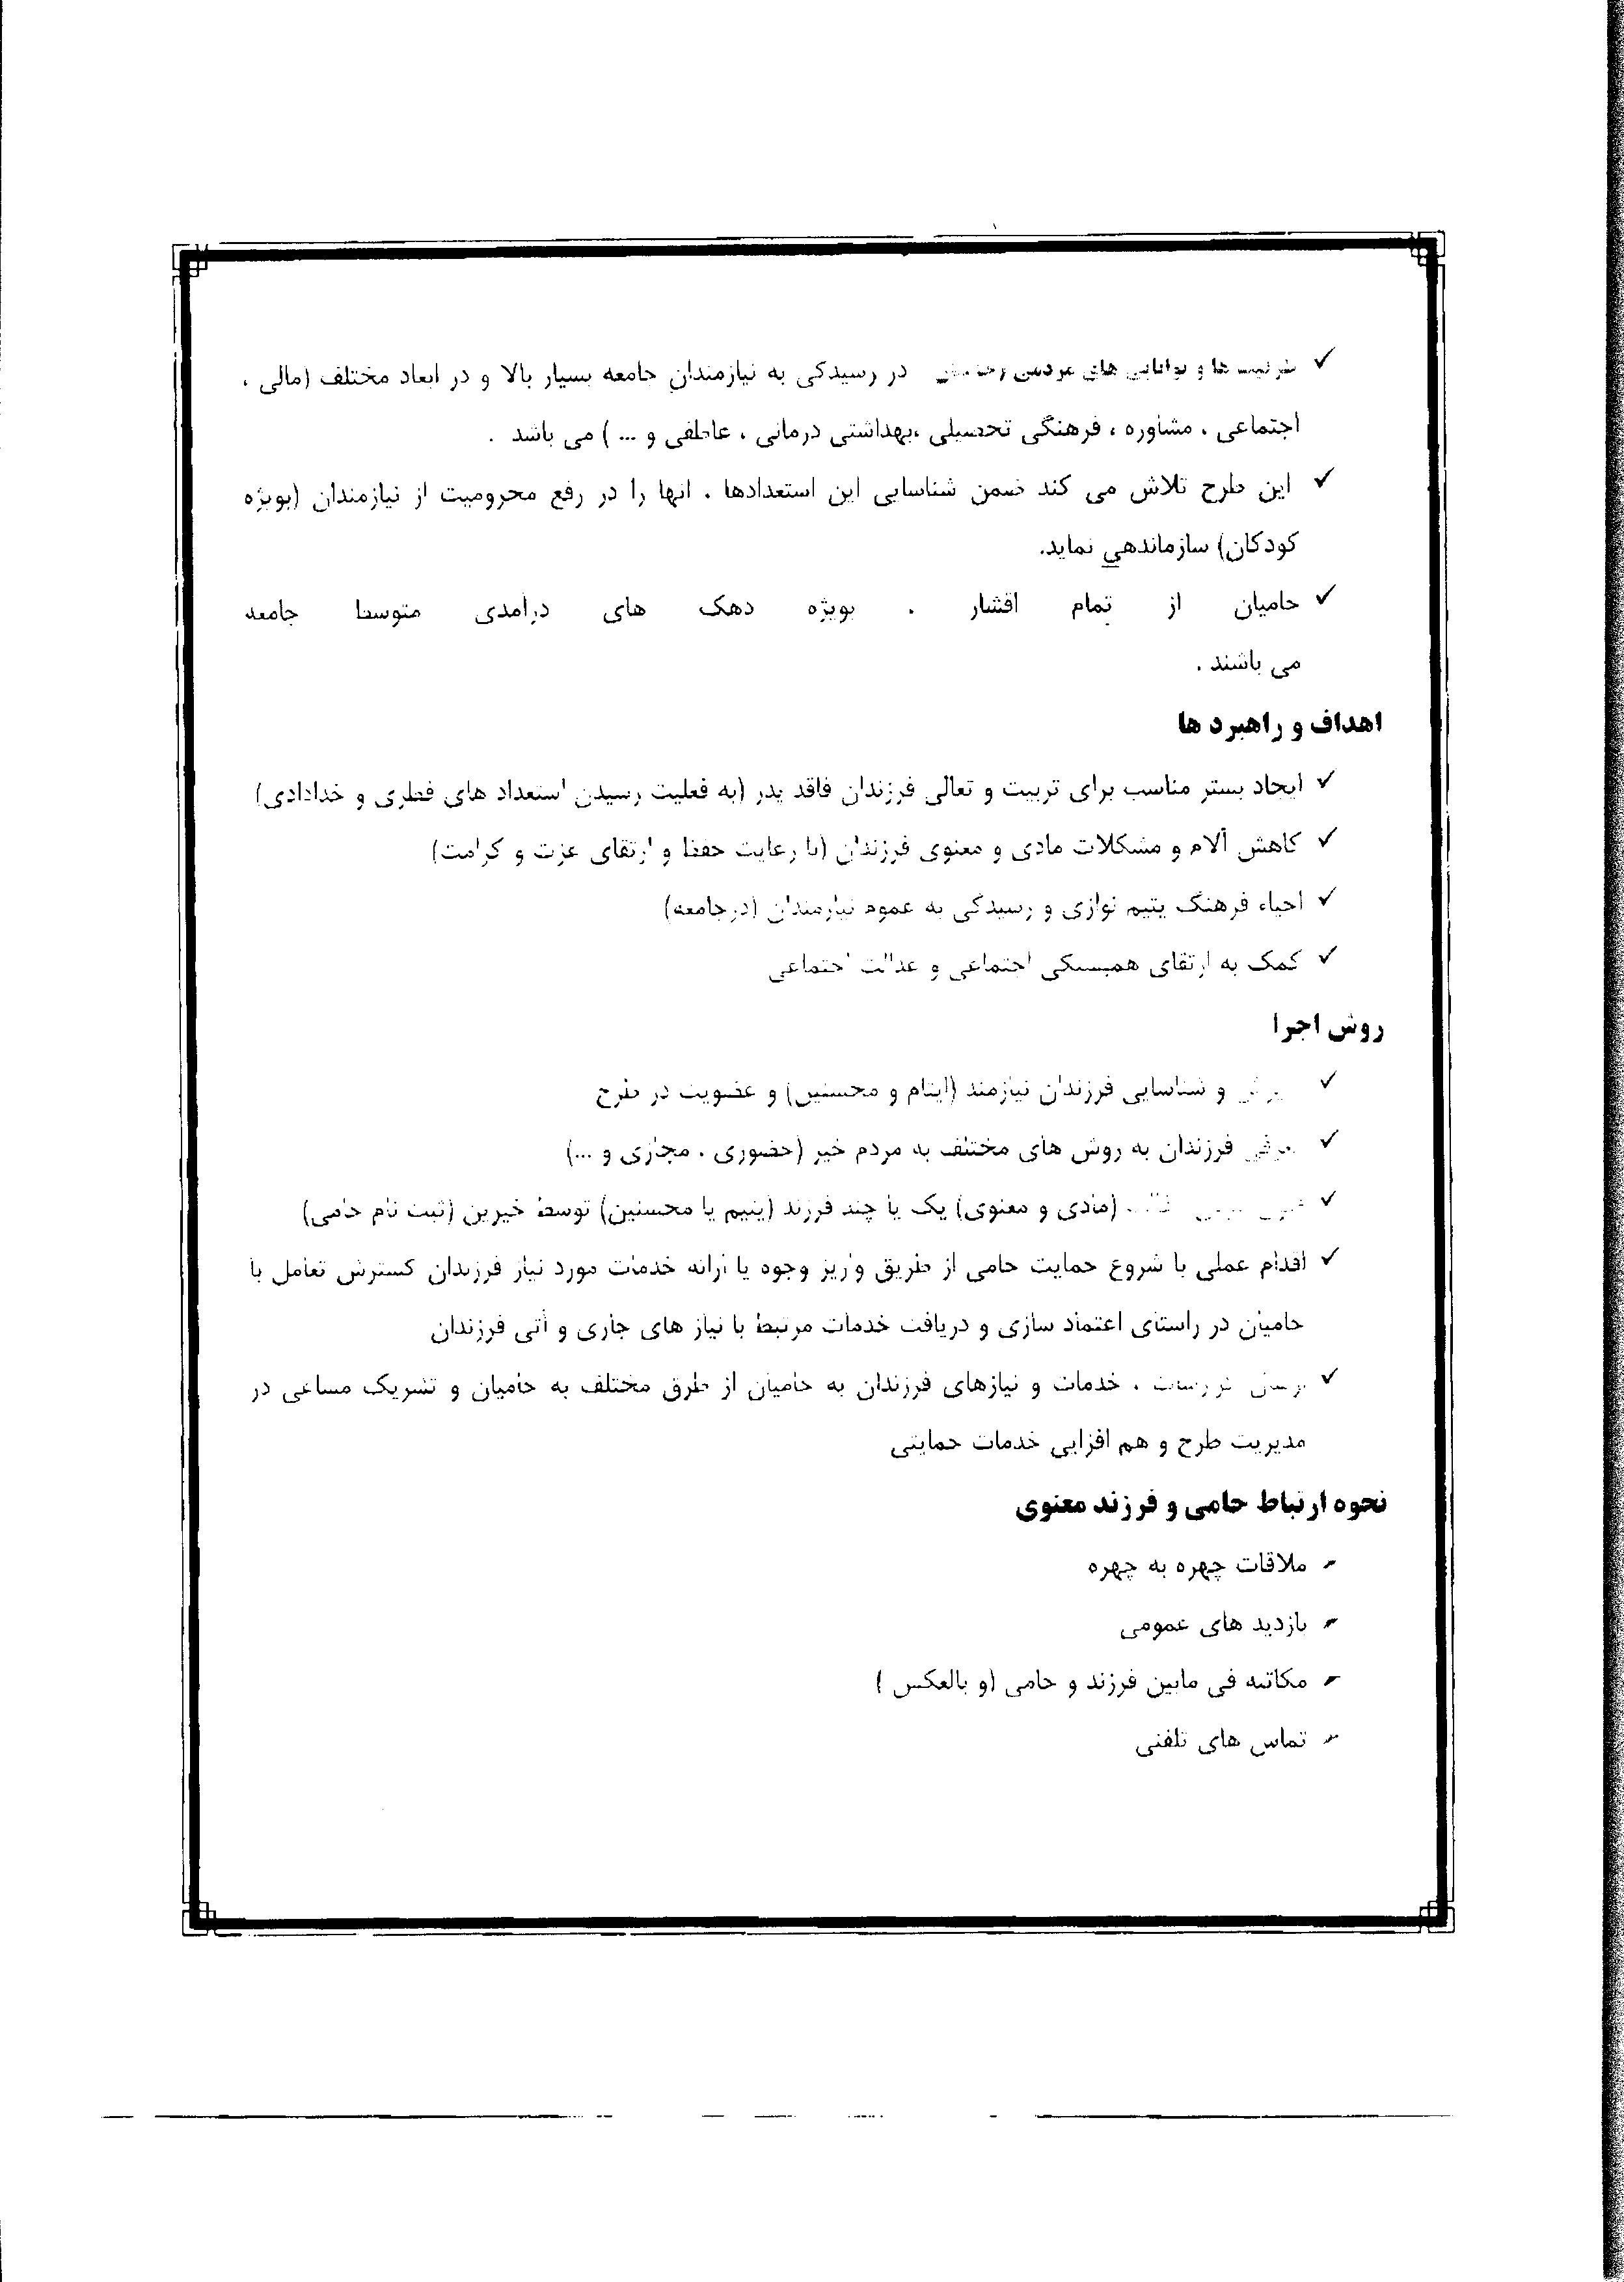 ✓ ظرفیت ها و توانایی های مردمی در رسیدگی به نیازمندان جامعه بسیار بالا و در ابعاد مختلف (مالی ،
اجتماعی ، مشاوره ، فرهنگی تحصیلی ،بهداشتی درمانی ، عاطفی و ... ) می باشد .
✓ این طرح تلاش می کند ضمن شناسایی این استعدادها ، آنها را در رفع محرومیت از نیازمندان (بویژه
کودکان) سازماندهی نماید.
✓ حامیان از تمام اقشار ، بویژه دهک های درآمدی متوسط جامعه
می باشند .
اهداف و راهبرد ها
✓ ایجاد بستر مناسب برای تربیت و تعالی فرزندان فاقد پدر (به فعلیت رسیدن استعداد های فطری و خدادادی)
✓ کاهش آلام و مشکلات مادی و معنوی فرزندان (با رعایت حفظ و ارتقای عزت و کرامت)
✓ احیاء فرهنگ یتیم نوازی و رسیدگی به عموم نیازمندان (درجامعه)
✓ کمک به ارتقای همبستگی اجتماعی و عدالت اجتماعی
روش اجرا
✓ و شناسایی فرزندان نیازمند (ایتام و محسنین) و عضویت در طرح
✓ فرزندان به روش های مختلف به مردم خیر (حضوری ، مجازی و ...)
✓ (مادی و معنوی) یک یا چند فرزند (یتیم یا محسنین) توسط خیرین (ثبت نام حامی)
✓ اقدام عملی با شروع حمایت حامی از طریق واریز وجوه یا ارائه خدمات مورد نیاز فرزندان گسترش تعامل با
حامیان در راستای اعتماد سازی و دریافت خدمات مرتبط با نیاز های جاری و آتی فرزندان
✓ ، خدمات و نیازهای فرزندان به حامیان از طرق مختلف به حامیان و تشریک مساعی در
مدیریت طرح و هم افزایی خدمات حمایتی
نحوه ارتباط حامی و فرزند معنوی
- ملاقات چهره به چهره
- بازدید های عمومی
- مکاتبه فی مابین فرزند و حامی (و بالعکس )
- تماس های تلفنی